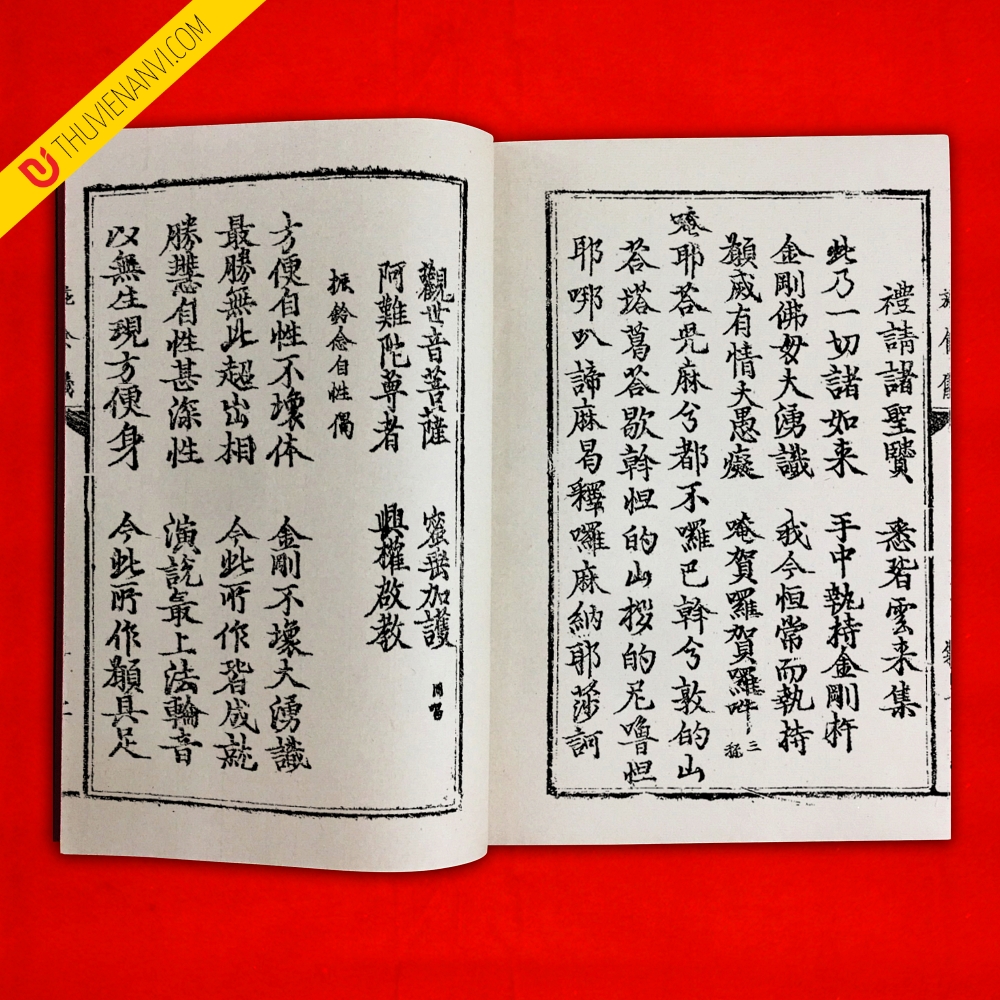 THUVIENANVI.COM
禮請諸聖賢 悉皆雲来集
此乃一切諸如来 手中執持金剛杵
金剛佛母大湧識 我今恒常而執持
願威有情大愚癡 唵賀囉賀囉吽 三
唵耶荅兒麻兮都不囉巴斡兮敦的山
荅塔葛荅歇斡怛的山拶的尼嚕怛
耶哪叭諦麻曷釋囉麻納耶莎訶
觀世音菩薩 密垂加護
阿難陀尊者 興權啟教 同唱
振鈴念自性偈
方便自性不壞体 金剛不壞大湧識
最勝無比超出相 今此所作皆成就
勝慧自性甚深性 演說最上法輪音
以無生現方便身 今此所作願具足